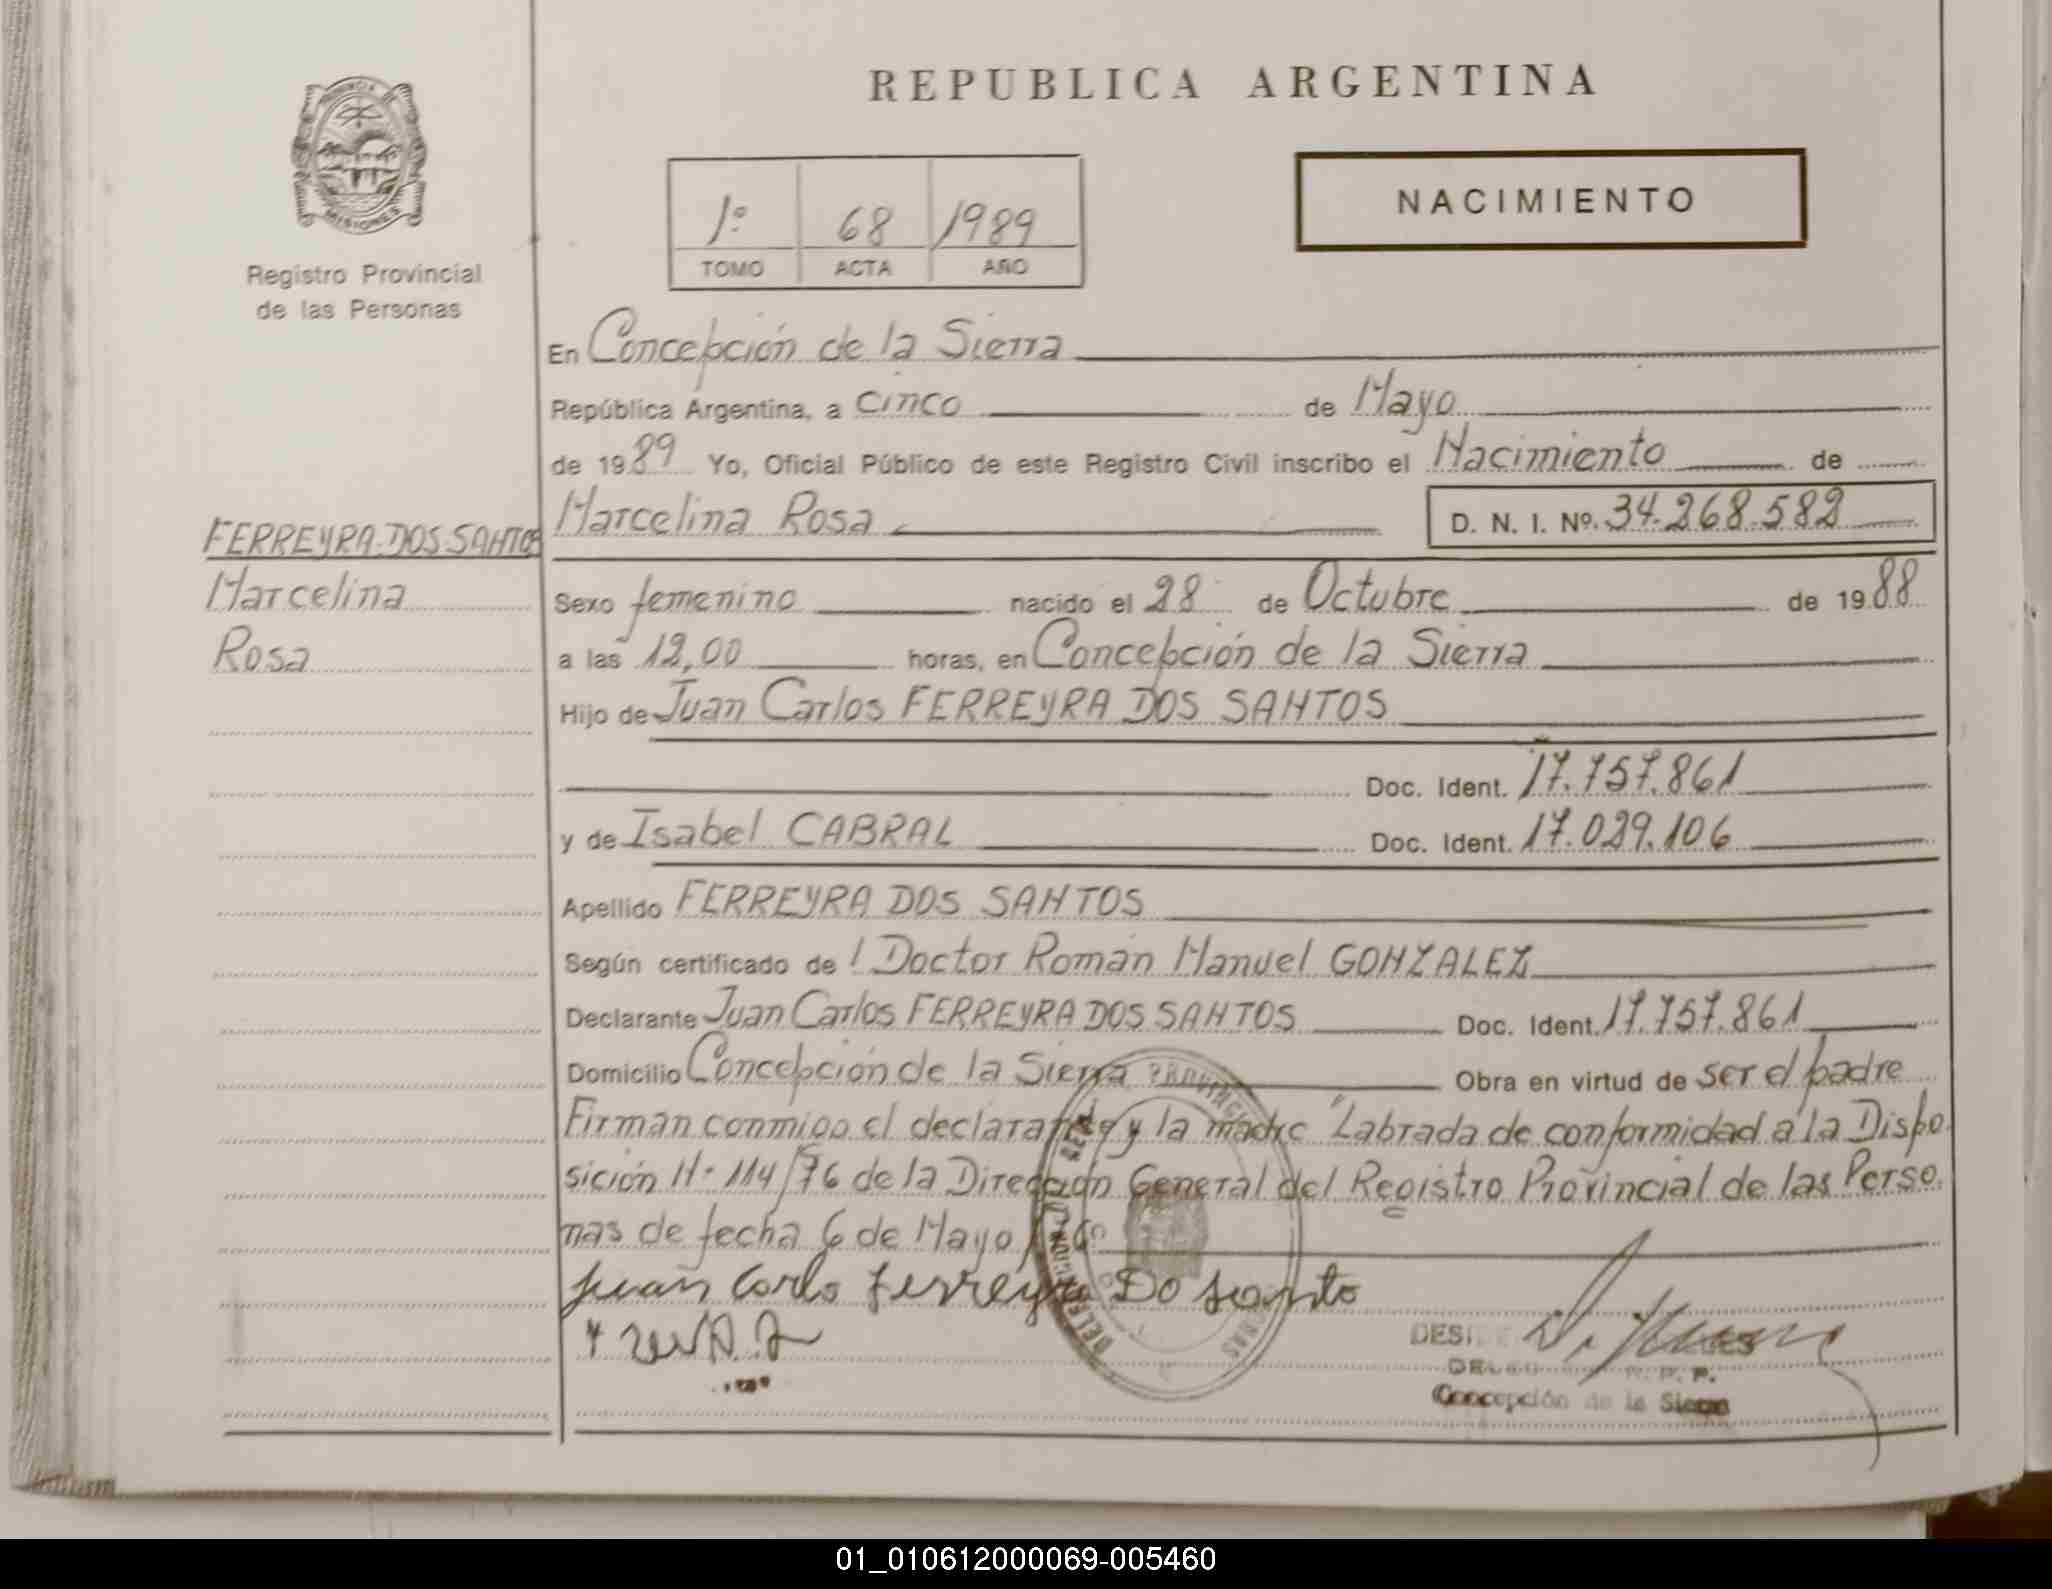 REPUBLICA ARGENTINA
PROVINCIA DE
MISIONES
Registro Provincial
de las Personas
1º 68 1989
TOMO ACTA AÑO
NACIMIENTO
En Concepción de la Sierra
República Argentina, a cinco de Mayo
de 1989 Yo, Oficial Público de este Registro Civil inscribo el Nacimiento de
Marcelina Rosa D. N. I. Nº. 34.268.582
FERREYRA DOS SANTOS
Marcelina
Rosa
Sexo femenino nacido el 28 de Octubre de 1988
a las 12,00 horas, en Concepción de la Sierra
Hijo de Juan Carlos FERREYRA DOS SANTOS
Doc. Ident. 17.757.861
y de Isabel CABRAL Doc. Ident. 17.029.106
Apellido FERREYRA DOS SANTOS
Según certificado del Doctor Román Manuel GONZALEZ
Declarante Juan Carlos FERREYRA DOS SANTOS Doc. Ident. 17.757.861
Domicilio Concepción de la Sierra Obra en virtud de ser el padre
Firman conmigo el declarante y la madre "Labrada de conformidad a la Dispo
sición N- 114/76 de la Dirección General del Registro Provincial de las Perso
nas de fecha 6 de Mayo
Juan Carlo Ferreyra Do Santo
Concepción de la Sierra
01_010612000069-005460